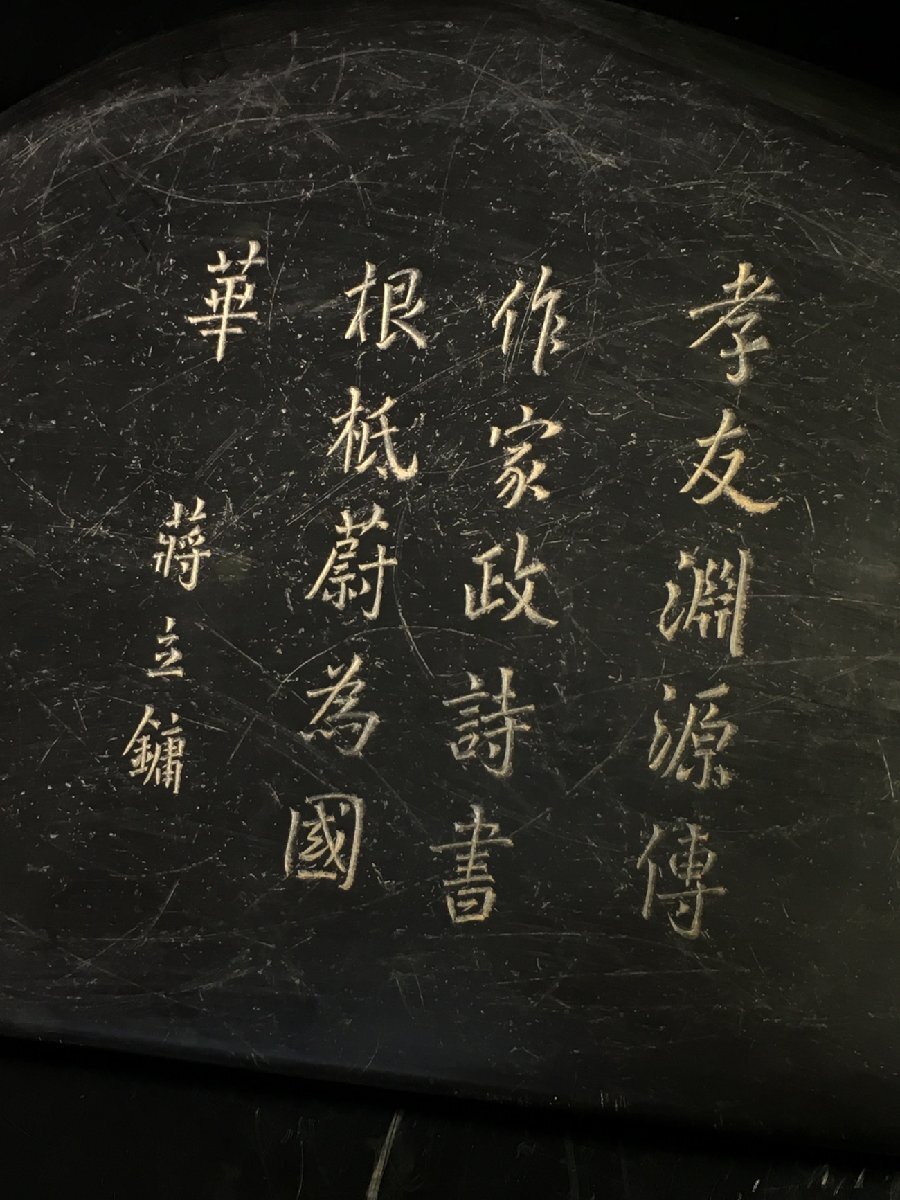 孝友淵源傳
作家政詩書
根柢蔚為國
華
蔣立鏞